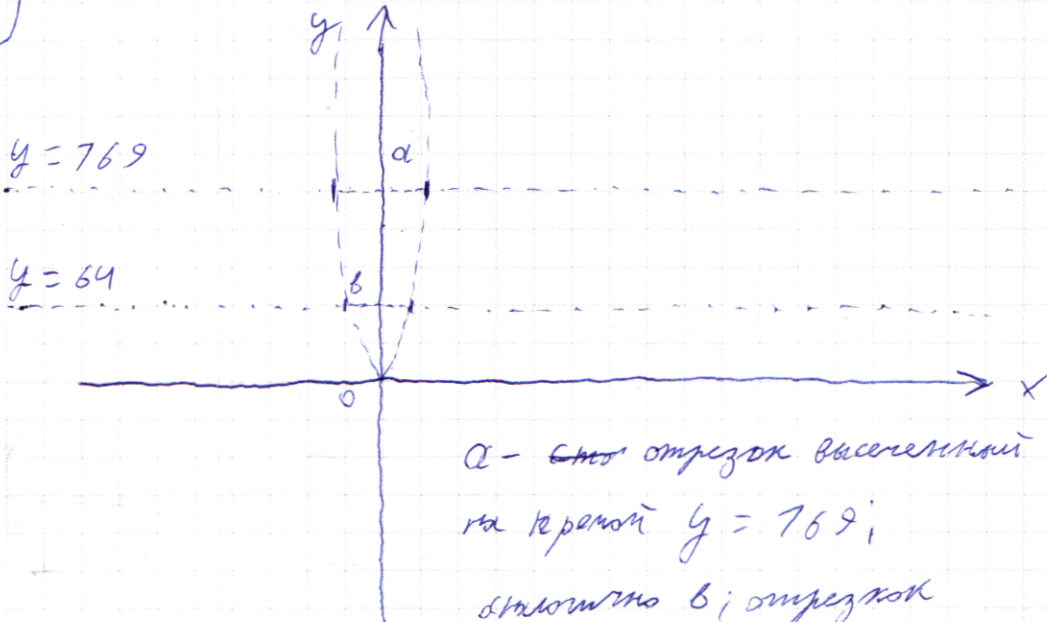 y
a
y = 169
y = 64
в
0
x
a - отрезок высеченный
на прямой y = 169;
аналогично в; отрезкок